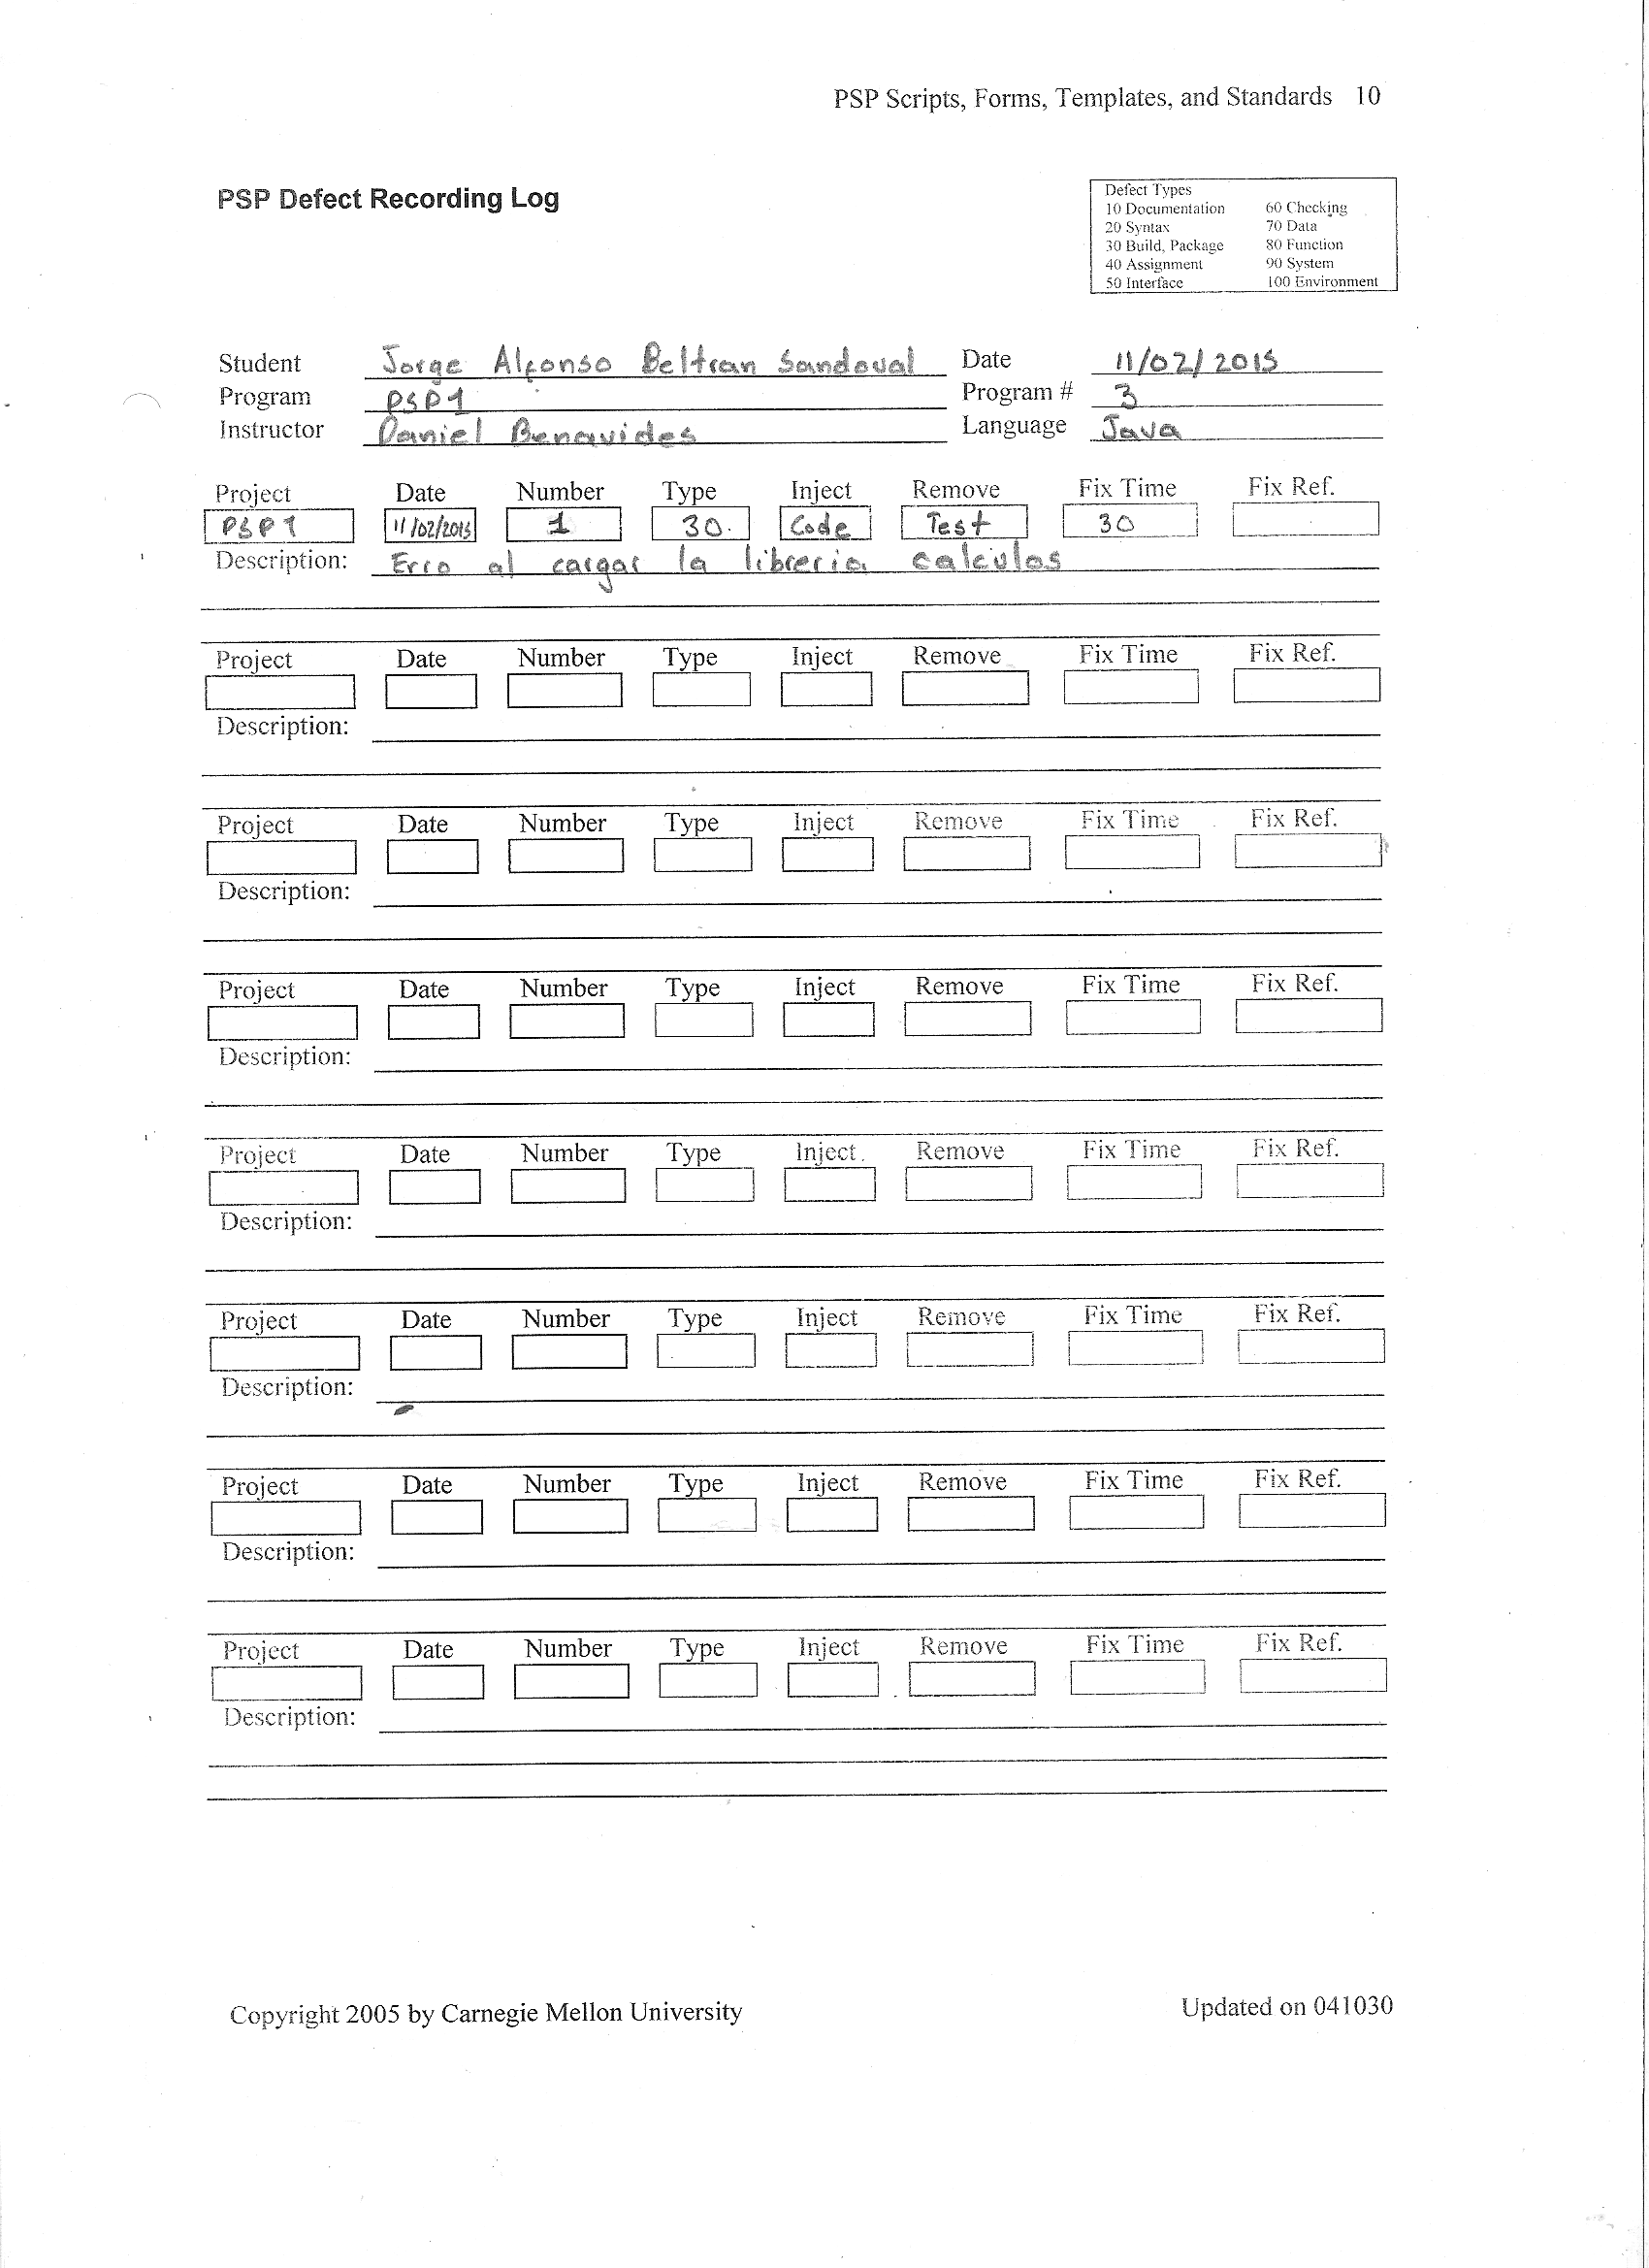 PSP Scripts, Forms, Templates, and Standards 10
PSP Defect Recording Log
Defect Types
10 Documentation 60 Checking
20 Syntax 70 Data
30 Build, Package 80 Function
40 Assignment 90 System
50 Interface 100 Environment
Student Jorge Alfonso Beltran Sandoval Date 11/02/2015
Program PSP1 Program # 3
Instructor Daniel Benavides Language Java
Project Date Number Type Inject Remove Fix Time Fix Ref.
PSP1 11/02/2015 1 30. Code Test 30
Description: Erro al cargar la libreria calculos
Project Date Number Type Inject Remove Fix Time Fix Ref.
Description:
Project Date Number Type Inject Remove Fix Time Fix Ref.
Description:
Project Date Number Type Inject Remove Fix Time Fix Ref.
Description:
Project Date Number Type Inject Remove Fix Time Fix Ref.
Description:
Project Date Number Type Inject Remove Fix Time Fix Ref.
Description:
Project Date Number Type Inject Remove Fix Time Fix Ref.
Description:
Project Date Number Type Inject Remove Fix Time Fix Ref.
Description:
Copyright 2005 by Carnegie Mellon University Updated on 041030